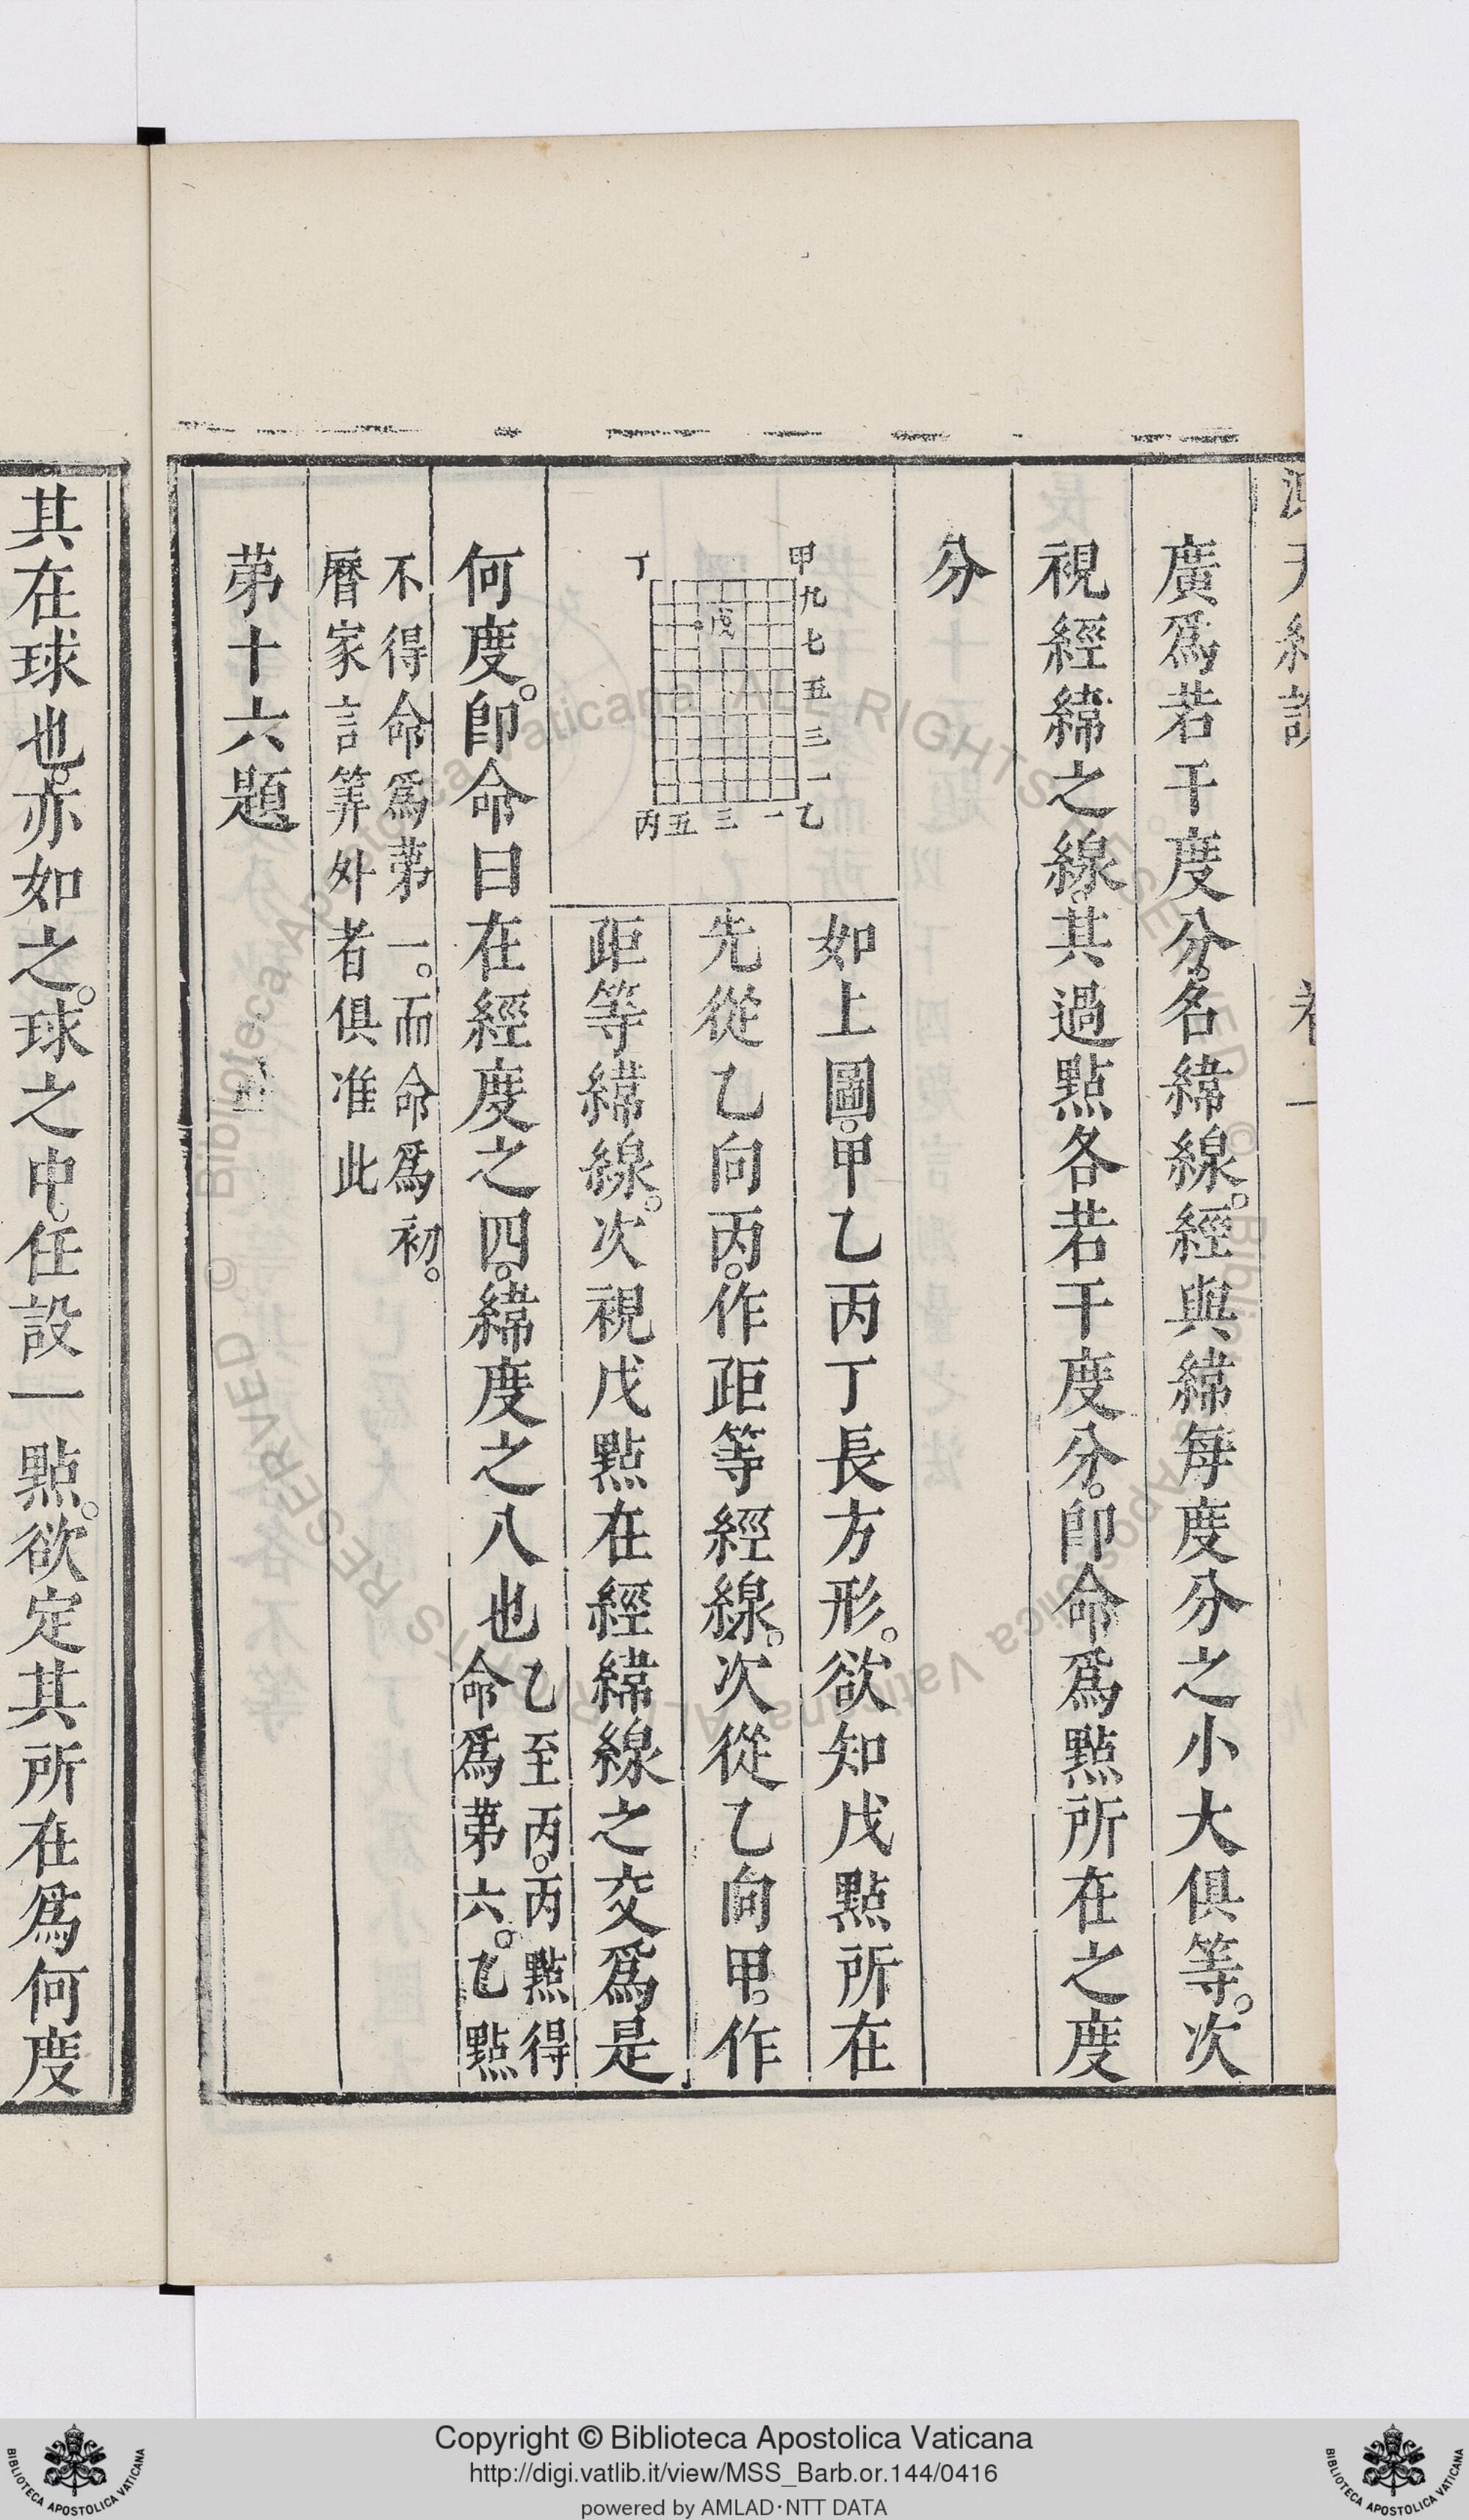 廣爲若干度分。名緯線。經與緯每度分之小大俱等。次
視經緯之線。其過點各若干度分。卽命爲點所在之度
分
甲
九
七
五
三
一
乙
一
三
五
丙
丁
戊
如上圖。甲乙丙丁長方形。欲知戊點所在
先從乙向丙。作距等經線。次從乙向甲。作
距等緯線。次視戊點在經緯線之交爲是
何度。卽命曰在經度之四。緯度之八也乙至丙。丙點得
命爲第六。乙點
不得命爲第一。而命爲初。
曆家言筭外者俱准此
第十六題
其在球也。亦如之。球之中。任設一點。欲定其所在爲何度
Copyright © Biblioteca Apostolica Vaticana
http://digi.vatlib.it/view/MSS_Barb.or.144/0416
powered by AMLAD·NTT DATA
BIBLIOTECA APOSTOLICA VATICANA
BIBLIOTECA APOSTOLICA VATICANA